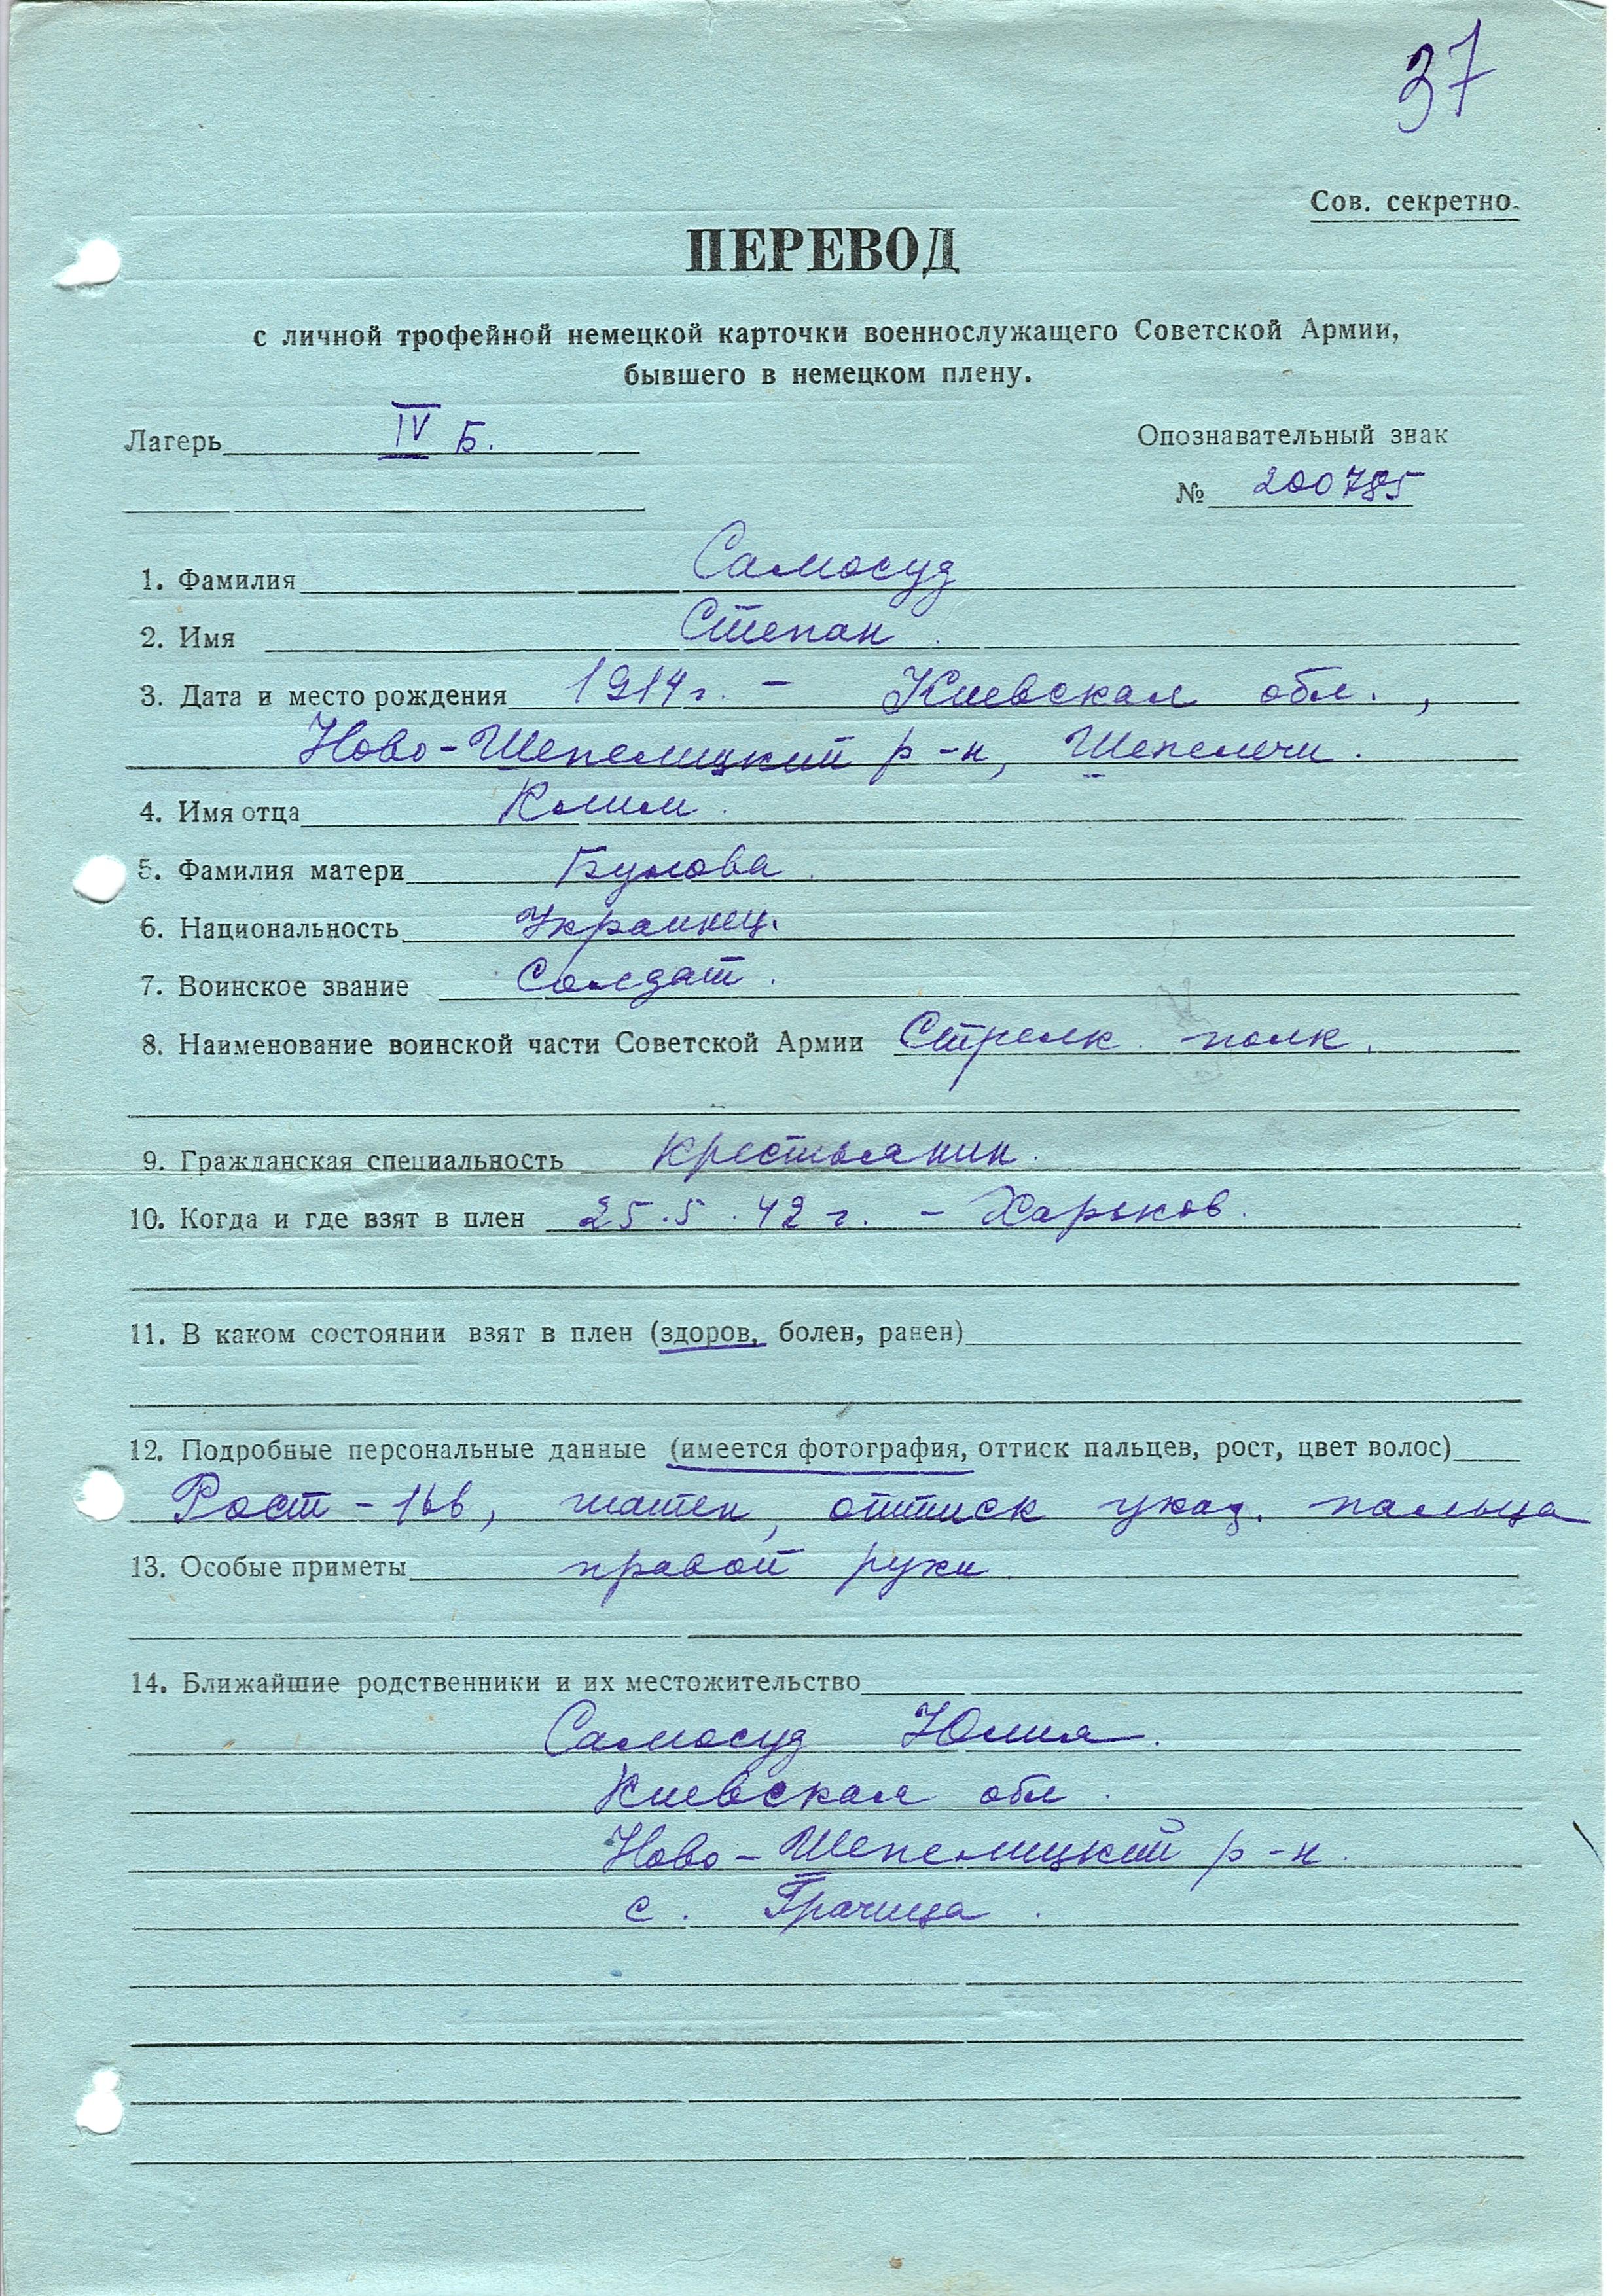 37
Сов. секретно.
ПЕРЕВОД
с личной трофейной немецкой карточки военнослужащего Советской Армии,
бывшего в немецком плену.
Лагерь IV Б.
Опознавательный знак
№ 200785
1. Фамилия Самосуд
2. Имя Степан.
3. Дата и место рождения 1914 г. – Киевская обл.,
Ново-Шепелицкий р-н, Шепеличи.
4. Имя отца Клим.
5. Фамилия матери
6. Национальность Украинец.
7. Воинское звание Солдат.
8. Наименование воинской части Советской Армии Стрелк. полк.
9. Гражданская специальность крестьянин.
10. Когда и где взят в плен 25.5.42 г. – Харьков.
11. В каком состоянии взят в плен (здоров, болен, ранен)
12. Подробные персональные данные (имеется фотография, оттиск пальцев, рост, цвет волос)
Рост – 166, шатен, оттиск указ. пальца
13. Особые приметы правой руки.
14. Ближайшие родственники и их местожительство
Самосуд Юлия.
Киевская обл.
Ново-Шепелицкий р-н.
с.